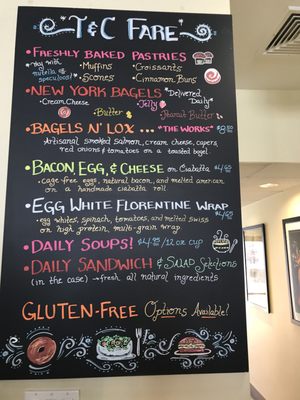 T&C FARE
• FRESHLY BAKED PASTRIES
*try with nutella & speculoos!
• Muffins
• Croissants
• Scones
• Cinnamon Buns
• NEW YORK BAGELS *Delivered Daily*
• Cream Cheese
• Jelly
• Butter
• Peanut Butter
• BAGELS N' LOX ... "THE WORKS"
Artisanal smoked salmon, cream cheese, capers,
red onions & tomatoes on a toasted bagel
• BACON, EGG, & CHEESE on Ciabatta
• cage free eggs, natural bacon, and melted american
on a handmade ciabatta roll
• EGG WHITE FLORENTINE WRAP
• egg whites, spinach, tomatoes, and melted swiss
on high protein, multi-grain wrap
• DAILY SOUPS! $4.95/12 oz CUP
• DAILY SANDWICH & SOUP Selections
(in the case) → fresh, all natural ingredients
GLUTEN-FREE Options Available!